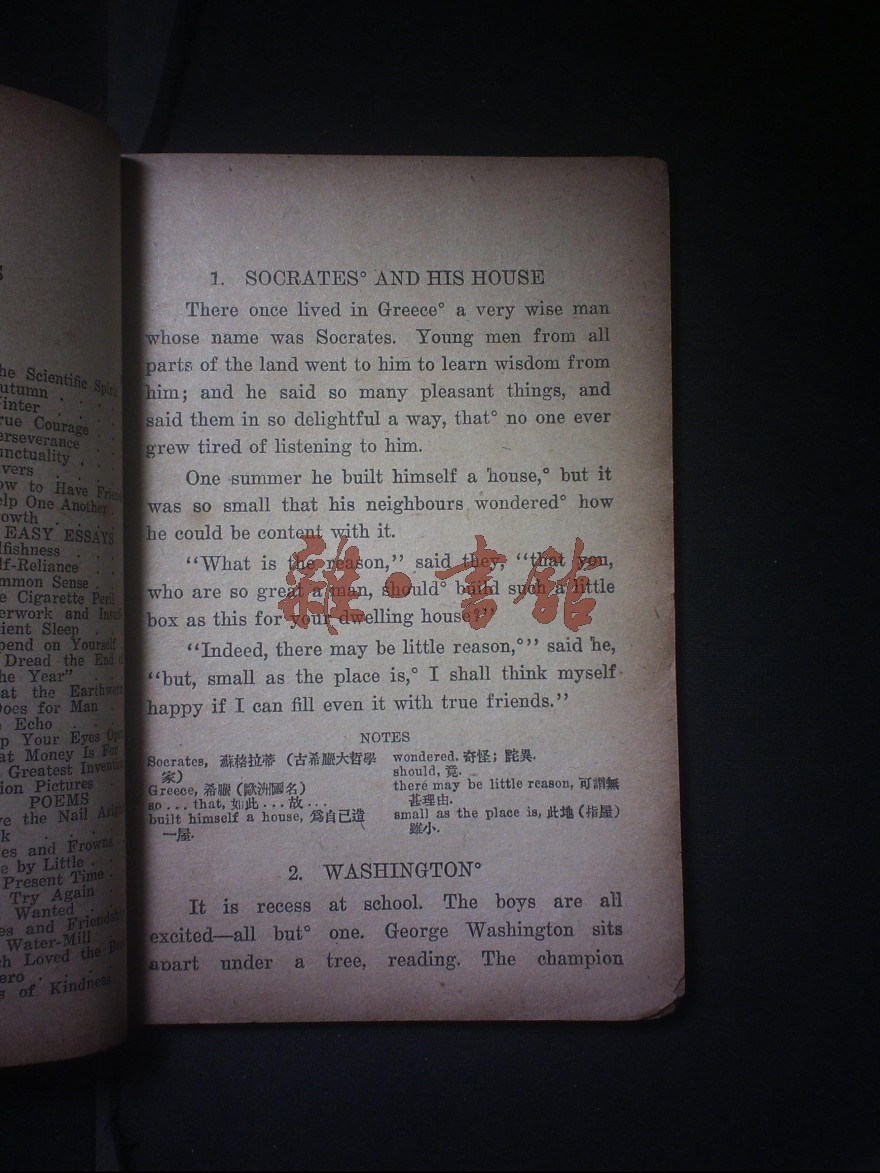 S
he Scientific
utumn
inter
rue Courage
erseverance
unctuality
vers
ow to Have
elp One Another
owth
EASY ESSAYS
lfishness
lf-Reliance
mmon Sense
e Cigarette
erwork and
ient Sleep
pend on Yourself
Dread the End
he Year”
at the
Does for Man
Echo
p Your Eyes
at Money Is For
Greatest
ion Pictures
POEMS
ve the Nail
k
es and Frowns
e by Little
Present Time
Try Again
Wanted
es and
Water-Mill
ch Loved the
ero
s of Kindness
1. SOCRATES° AND HIS HOUSE
There once lived in Greece° a very wise man
whose name was Socrates. Young men from all
parts of the land went to him to learn wisdom from
him; and he said so many pleasant things, and
said them in so delightful a way, that° no one ever
grew tired of listening to him.
One summer he built himself a house,° but it
was so small that his neighbours wondered° how
he could be content with it.
“What is the reason,” said they, “that you,
who are so great a man, should° build such a little
box as this for your dwelling house?”
“Indeed, there may be little reason,°” said he,
“but, small as the place is,° I shall think myself
happy if I can fill even it with true friends.”
雜·書館
NOTES
Socrates, 蘇格拉蒂 (古希臘大哲學
家)
Greece, 希臘 (歐洲國名)
so . . . that, 如此 . . . 故 . . .
built himself a house, 爲自己造
一屋.
wondered. 奇怪; 詫異.
should, 竟.
there may be little reason, 可謂無
甚理由.
small as the place is, 此地 (指屋)
雖小.
2. WASHINGTON°
It is recess at school. The boys are all
excited—all but° one. George Washington sits
apart under a tree, reading. The champion